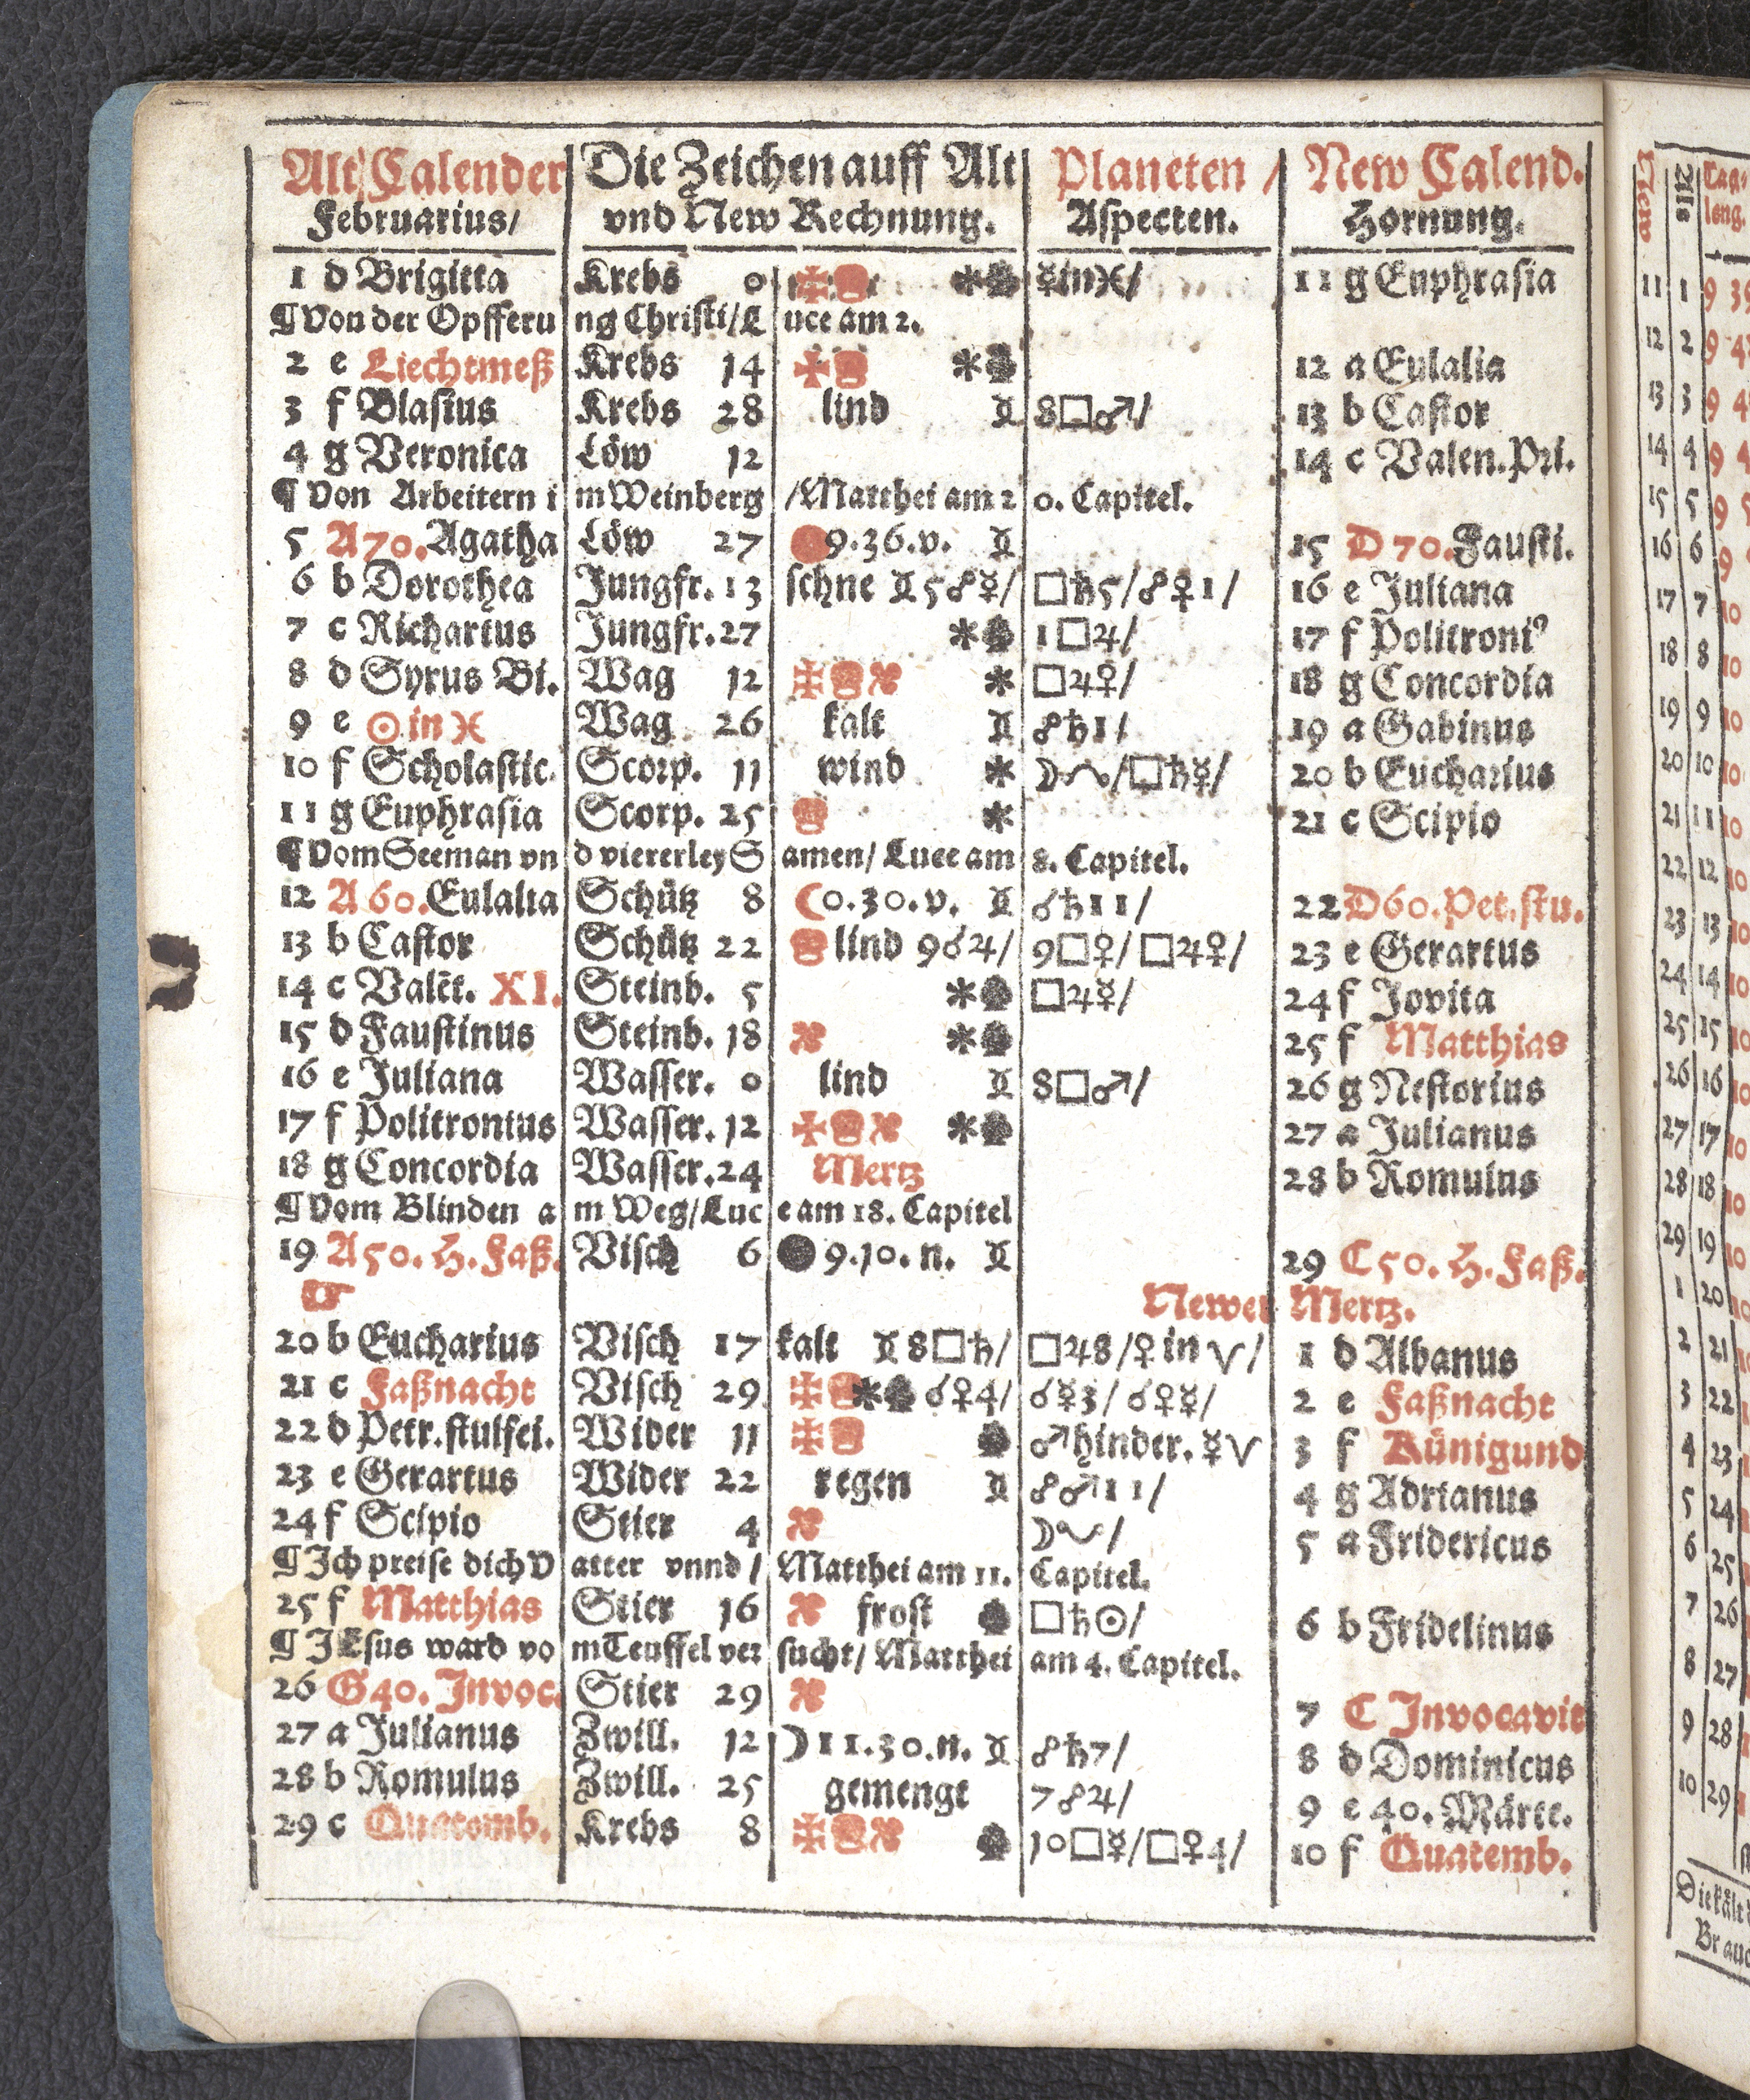 Alt Calender Die Zeichen auff Alt Planeten / New Calend.
Februarius/ vnd New Rechnung. Aspecten. Hornung.
1 d Brigitta Krebs 0 ☿in♓/ 11 g Euphrasia
¶ Von der Opfferung Christi/Luce am 2.
2 e Liechtmeß Krebs 14 12 a Eulalia
3 f Blasius Krebs 28 lind ♊ 8□♂/ 13 b Castor
4 g Veronica Löw 12 14 c Valen.Pri.
¶ Von Arbeitern im Weinberg/Matthei am 20. Capitel.
5 A 70. Agatha Löw 27 9.36.v. ♊ 15 D 70. Fausti.
6 b Dorothea Jungfr. 13 schne ♊ 5☍☿/ □♄5/☍♀1/ 16 e Juliana
7 c Richartus Jungfr. 27 1□♃/ 17 f Politroni⁹
8 d Syrus Bi. Wag 12 □♃♀/ 18 g Concordia
9 e ☉ in ♓ Wag 26 kalt ♊ ☍♄1/ 19 a Gabinus
10 f Scholastic. Scorp. 11 wind □♄☿/ 20 b Eucharius
11 g Euphrasia Scorp. 25 21 c Scipio
¶ Vom Seeman vnd viererley Samen/ Luce am 8. Capitel.
12 A 60. Eulalia Schütz 8 ☾0.30.v. ♊ ☌♄11/ 22 D60. Pet.stu.
13 b Castor Schütz 22 lind 9☌♃/ 9□♀/ □♃♀/ 23 e Gerartus
14 c Valēt. XI. Steinb. 5 □♃☿/ 24 f Jovita
15 d Faustinus Steinb. 18 25 f Matthias
16 e Juliana Wasser. 0 lind ♊ 8□♂/ 26 g Nestorius
17 f Politronius Wasser. 12 27 a Julianus
18 g Concordia Wasser. 24 Mertz 28 b Romulus
¶ Vom Blinden am Weg/Luce am 18. Capitel
19 A 50. H. Faß. Visch 6 ● 9.10.n. ♊ 29 C 50. H. Faß.
☞ Newer Mertz.
20 b Eucharius Visch 17 kalt ♊ 8□♄/ □♃8/♀ in ♈/ 1 d Albanus
21 c Faßnacht Visch 29 ☌♀4/ ☌☿3/ ☌♀☿/ 2 e Faßnacht
22 d Petr.stulfei. Wider 11 ♂hinder. ☿♈ 3 f Künigund
23 e Gerartus Wider 22 regen ♊ ☍♂11/ 4 g Adrianus
24 f Scipio Stier 4 5 a Fridericus
¶ Ich preise dich Vatter vnnd / Matthei am 11. Capitel.
25 f Matthias Stier 16 frost □♄☉/ 6 b Fridelinus
¶ JEsus ward vom Teuffel versucht/ Matthei am 4. Capitel.
26 G40. Invoc. Stier 29 7 C Invocavit
27 a Julianus Zwill. 12 ☽11.30.n. ♊ ☍♄7/ 8 d Dominicus
28 b Romulus Zwill. 25 gemengt 7☍♃/ 9 e 40. Märte.
29 c Quatemb. Krebs 8 10□☿/□♀4/ 10 f Quatemb.
New Alt Tag-
leng.
11 1 9
12 2 9
13 3 9
14 4 9
15 5 9
16 6 9
17 7 10
18 8 10
19 9 10
20 10 10
21 11 10
22 12 10
23 13 10
24 14 10
25 15 10
26 16 10
27 17 10
28 18 10
29 19 10
1 20 10
2 21
3 22
4 23
5 24
6 25
7 26
8 27
9 28
10 29